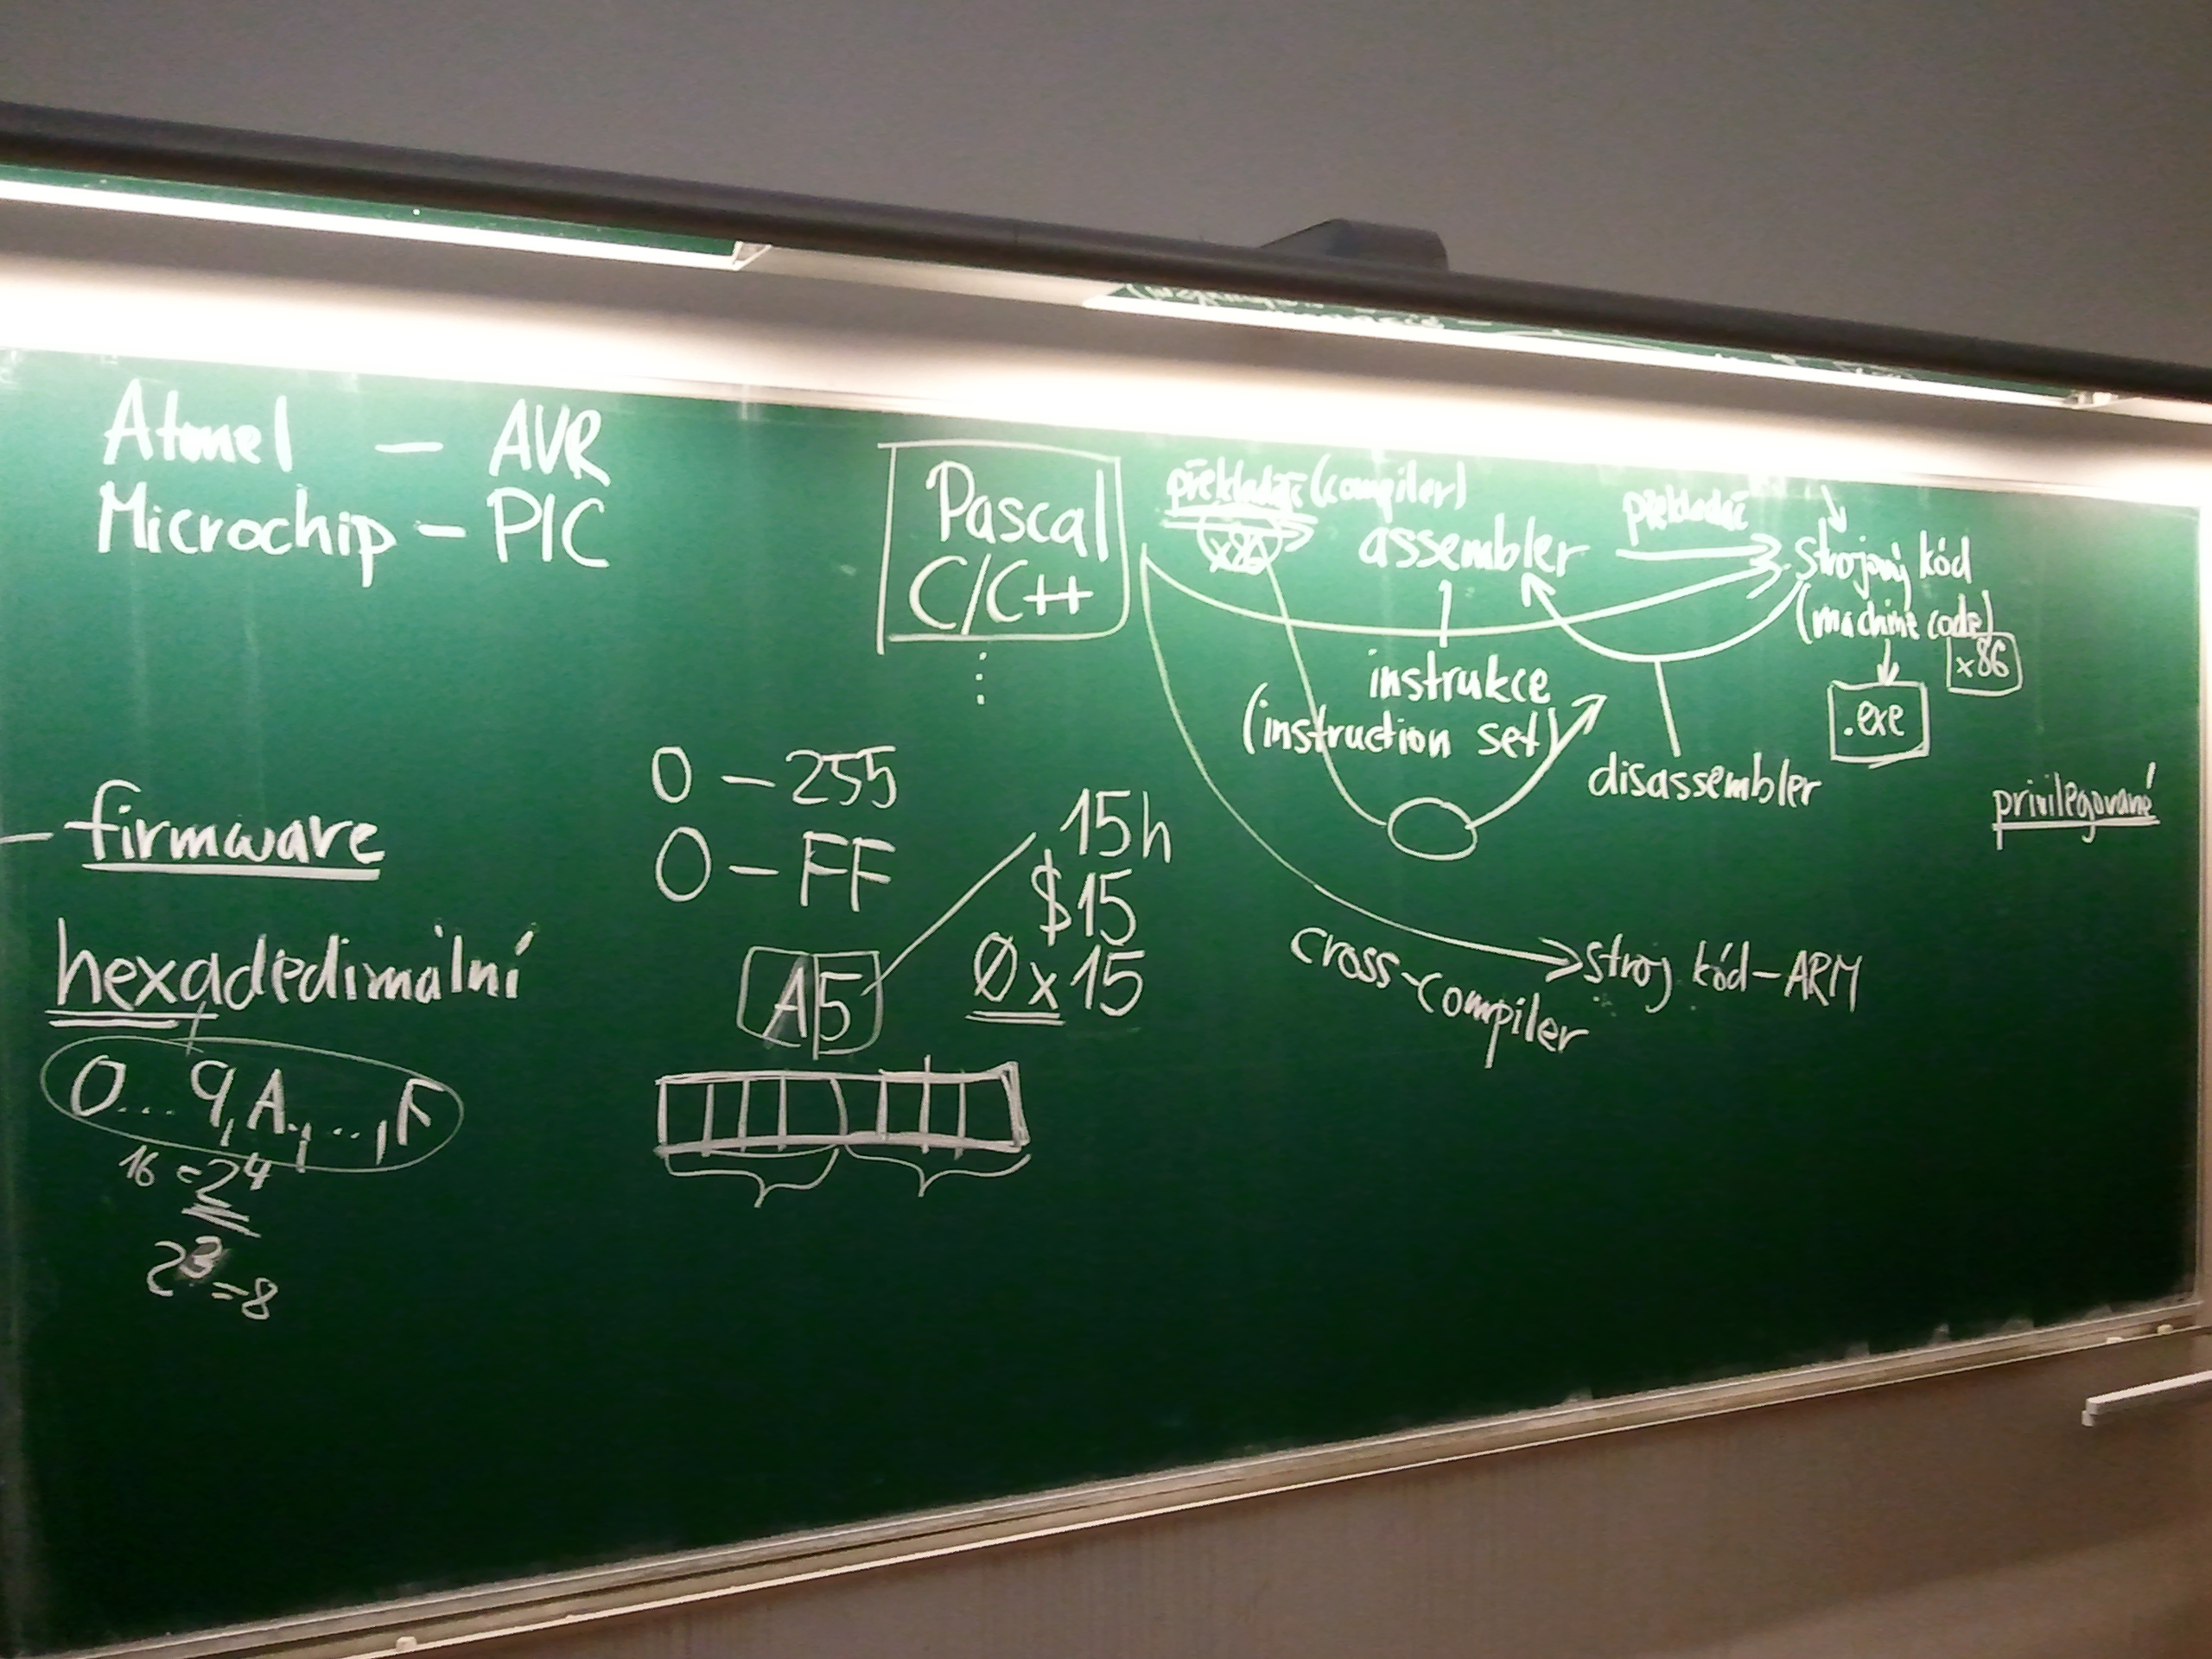 Atmel – AVR
Microchip – PIC
– firmware
hexadedimální
0...9,A,...,F
16 = 2⁴
2³ = 8
0 – 255
0 – FF
A5
15h
$15
0x15
Pascal
C/C++
⋮
překladač (compiler)
x86
assembler
překladač
strojový kód
(machine code)
x86
.exe
instrukce
(instruction set)
disassembler
privilegované
cross-compiler
stroj kód – ARM